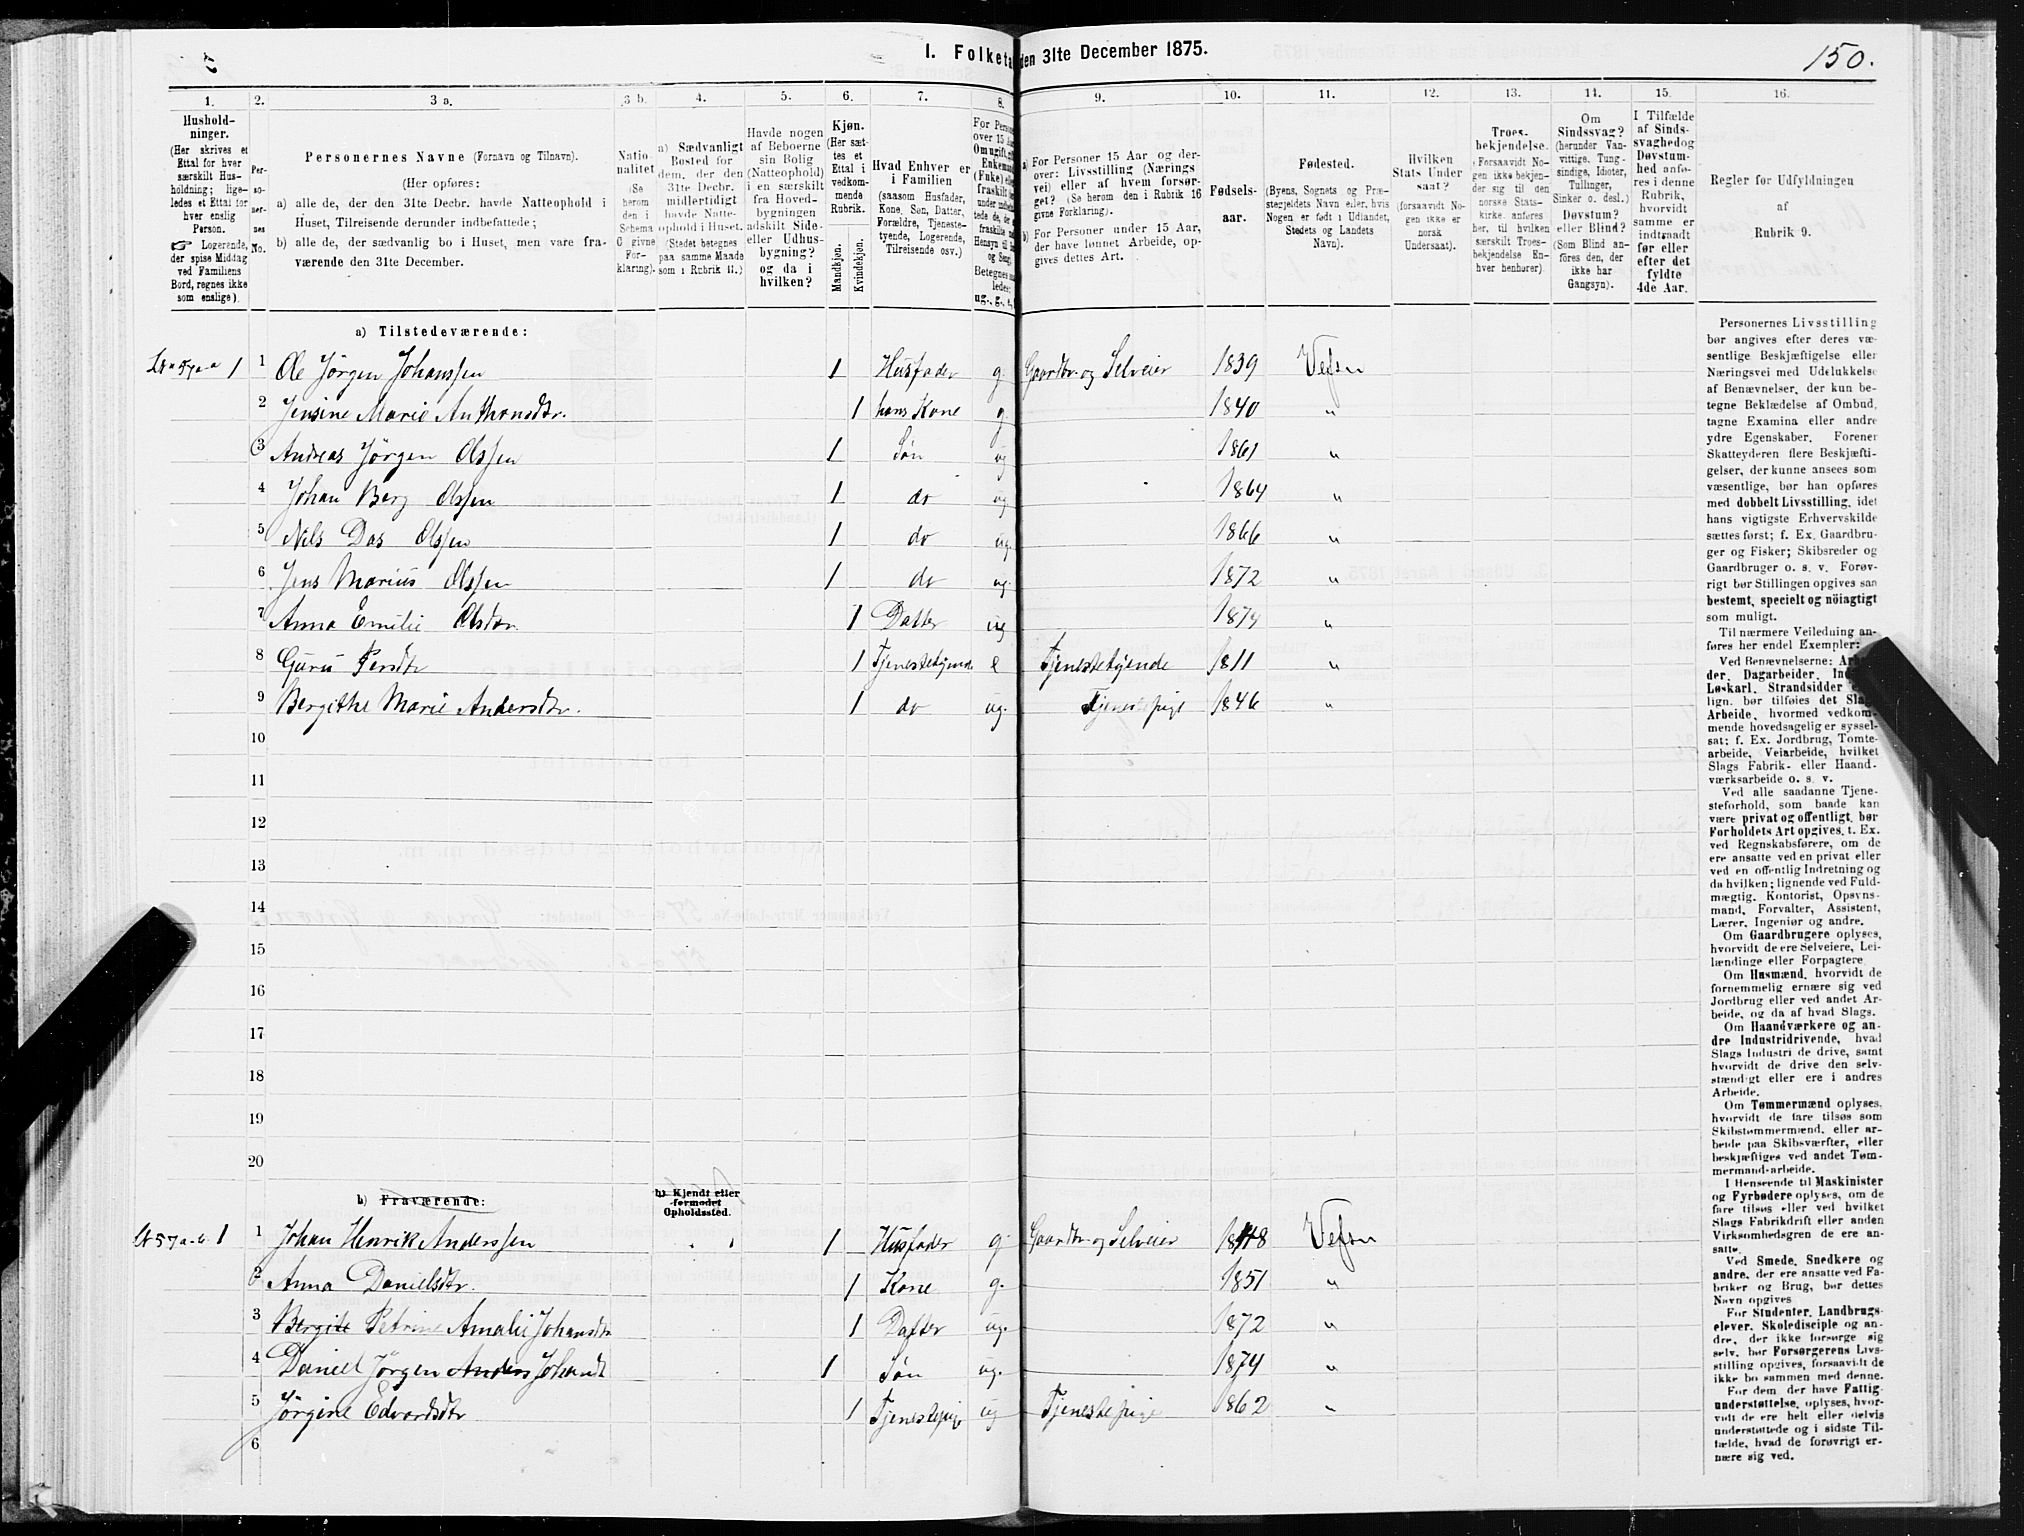 I. Folketæ
den 31te December 1875.
150.
1. 2. 3 a. 3 b. 4. 5. 6. 7. 8. 9. 10. 11. 12. 13. 14. 15. 16.
Hushold-
ninger.
(Her skrives et
Ettal for hver
særskilt Hus-
holdning; lige-
ledes et Ettal for
hver enslig
Person.
Logerende,
der spise Middag
ved Familiens
Bord, regnes ikke
som enslige).
Per-
so-
ner-
nes
No.
Personernes Navne (Fornavn og Tilnavn).
(Her opføres:
a) alle de, der den 31te Decbr. havde Natteophold i
Huset, Tilreisende derunder indbefattede;
b) alle de, der sædvanlig bo i Huset, men vare fra-
værende den 31te December.
Natio-
nalitet
(Se
herom
den i
Schema
C givne
For-
klaring).
a) Sædvanligt
Bosted for
dem, der den
31te Decbr.
midlertidigt
havde Natte-
ophold i Huset.
(Stedet betegnes
paa samme Maade
som i Rubrik 11.)
Havde nogen
af Beboerne
sin Bolig
(Natteophold)
i en særskilt
fra Hoved-
bygningen
adskilt Side-
eller Udhus-
bygning?
og da i
hvilken?
Kjøn.
(Her sæt-
tes et
Ettal i
vedkom-
mende
Rubrik.
Mandkjøn.
Kvindekjøn.
Hvad Enhver er
i Familien
(saasom Husfader,
Kone, Søn, Datter,
Forældre, Tjeneste-
tyende, Logerende,
Tilreisende osv.)
For Person
over 15 Aar
Om ugift, gi
Enkemand
(Enke) ell
fraskilt
Betegnes
ledes:
ug., g., e.,
a) For Personer 15 Aar og der-
over: Livsstilling (Nærings
vei) eller af hvem forsør-
get? (Se herom den i Rubrik 16
givne Forklaring).
b) For Personer under 15 Aar,
der have lønnet Arbeide, op-
gives dettes Art.
Fødsels-
aar.
Fødested.
(Byens, Sognets og Præ-
stegjeldets Navn eller, hvis
Nogen er født i Udlandet,
Stedets og Landets
Navn).
Hvilken
Stats Under
saat?
(forsaavidt No-
gen ikke er
norsk
Undersaat).
Troes-
bekjendelse.
(Forsaavidt No-
gen ikke bekjen-
der sig til den
norske Stats-
kirke, anføres
her, til hvilken
særskilt Troes-
bekjendelse En-
hver henhører).
Om
Sindssvag?
(herunder Van-
vittige, Tung-
sindige, Idioter,
Tullinger,
Sinker o. desl.)
Døvstum?
eller Blind?
(Som Blind an-
føres den, der
ikke har
Gangsyn).
I Tilfælde
af Sinds-
svaghed og
Døvstum-
hed anfø-
res i denne
Rubrik,
hvorvidt
samme er
indtraadt
før eller
efter det
fyldte
4de Aar.
Regler for Udfyldningen
af
Rubrik 9.
a) Tilstedeværende:
57a-a 1 1 Ole Jörgen Johanssen 1 Husfader g. Gaardbr. og Selveier 1839 Vefsn
2 Jensine Marie Anthonsdtr. 1 hans Kone g. 1840 "
3 Andreas Jörgen Olssen 1 Søn ug 1861 "
4 Johan Berg Olssen 1 do ug. 1864 "
5 Nils Das Olssen 1 do ug. 1866 "
6 Jens Marius Olssen 1 do ug. 1872 "
7 Anna Emilie Olsdtr. 1 Datter ug 1874 "
8 Guru Persdtr 1 Tjenestetyende e Tjenestetyende 1811 "
9 Bergithe Marie Andersdtr. 1 do ug. Tjenestepige 1846 "
10
11
12
13
14
15
16
17
18
19
20
b) Fraværende:
b) Kjendt eller
formodet
Opholdssted.
57a-b. 1 1 Johan Henrik Anderssen 1 Husfader g. Gaardbr. og Selveier 1848 Vefsn
2 Anna Danielsdtr. 1 Kone g. 1851 "
3 Bergite Petrine Amalie Johansdtr 1 Datter ug. 1872 "
4 Daniel Jörgen Anders Johansst 1 Søn ug. 1874 "
5 Jörgine Edvardsdtr 1 Tjenestepige ug Tjenestepige 1862 "
6
Personernes Livsstilling
bør angives efter deres væ-
sentlige Beskjæftigelse eller
Næringsvei med Udelukkelse
af Benævnelser, der kun be-
tegne Beklædelse af Ombud,
tagne Examina eller andre
ydre Egenskaber. Forener
Skatteyderen flere Beskjæfti-
gelser, der kunne ansees som
væsentlige, bør han opføres
med dobbelt Livsstilling, idet
hans vigtigste Erhvervskilde
sættes først; f. Ex. Gaardbru-
ger og Fisker; Skibsreder og
Gaardbruger o. s. v. Forøv-
rigt bør Stillingen opgives saa
bestemt, specielt og nöiagtigt
som muligt.
Til nærmere Veiledning an-
føres her endel Exempler:
Ved Benævnelserne: Arbei
der, Dagarbeider, Ind
Løskarl, Strandsidder e
lign. bør tilføies det Slag
Arbeide, hvormed vedkom-
mende hovedsagelig er syssel-
sat; f. Ex. Jordbrug, Tomte-
arbeide, Veiarbeide, hvilket
Slags Fabrik- eller Haand-
værksarbeide o. s. v.
Ved alle saadanne Tjene-
steforhold, som baade kan
være privat og offentligt, bør
Forholdets Art opgives, t. Ex.
ved Regnskabsførere, om de
ere ansatte ved en privat eller
ved en offentlig Indretning og
da hvilken; lignende ved Fuld-
mægtig, Kontorist, Opsyns-
mand, Forvalter, Assistent,
Lærer, Ingeniør og andre.
Om Gaardbrugere oplyses,
hvorvidt de ere Selveiere, Lei-
lændinge eller Forpagtere.
Om Husmænd, hvorvidt de
fornemmelig ernære sig ved
Jordbrug eller ved andet Ar-
beide, og da af hvad Slags.
Om Haandværkere og an-
dre Industridrivende, hvad
Slags Industri de drive, samt
hvorvidt de drive den selv-
stændigt eller ere i andres
Arbeide.
Om Tømmermænd oplyses,
hvorvidt de fare tilsøs som
Skibstømmermænd, eller ar-
beide paa Skibsværfter, eller
beskjæftiges ved andet Tøm-
mermand-arbeide.
I Henseende til Maskinister
og Fyrbødere oplyses, om de
fare tilsøs eller ved hvilket
Slags Fabrikdrift eller anden
Virksomhedsgren de ere an-
satte.
Ved Smede, Snedkere og
andre, der ere ansatte ved Fa-
briker og Brug, bør dettes
Navn opgives
For Studenter, Landbrugs-
elever, Skoledisciple og an-
dre, der ikke forsørge sig
selv, bør Forsørgerens Livs-
stilling opgives, forsaavidt de
ikke bo sammen med denne.
For dem, der have Fattig-
understøttelse, oplyses, hvor-
vidt de ere helt eller delvis
understøttede og i sidste Til-
fælde, hvad de forøvrigt er-
nære sig ved.